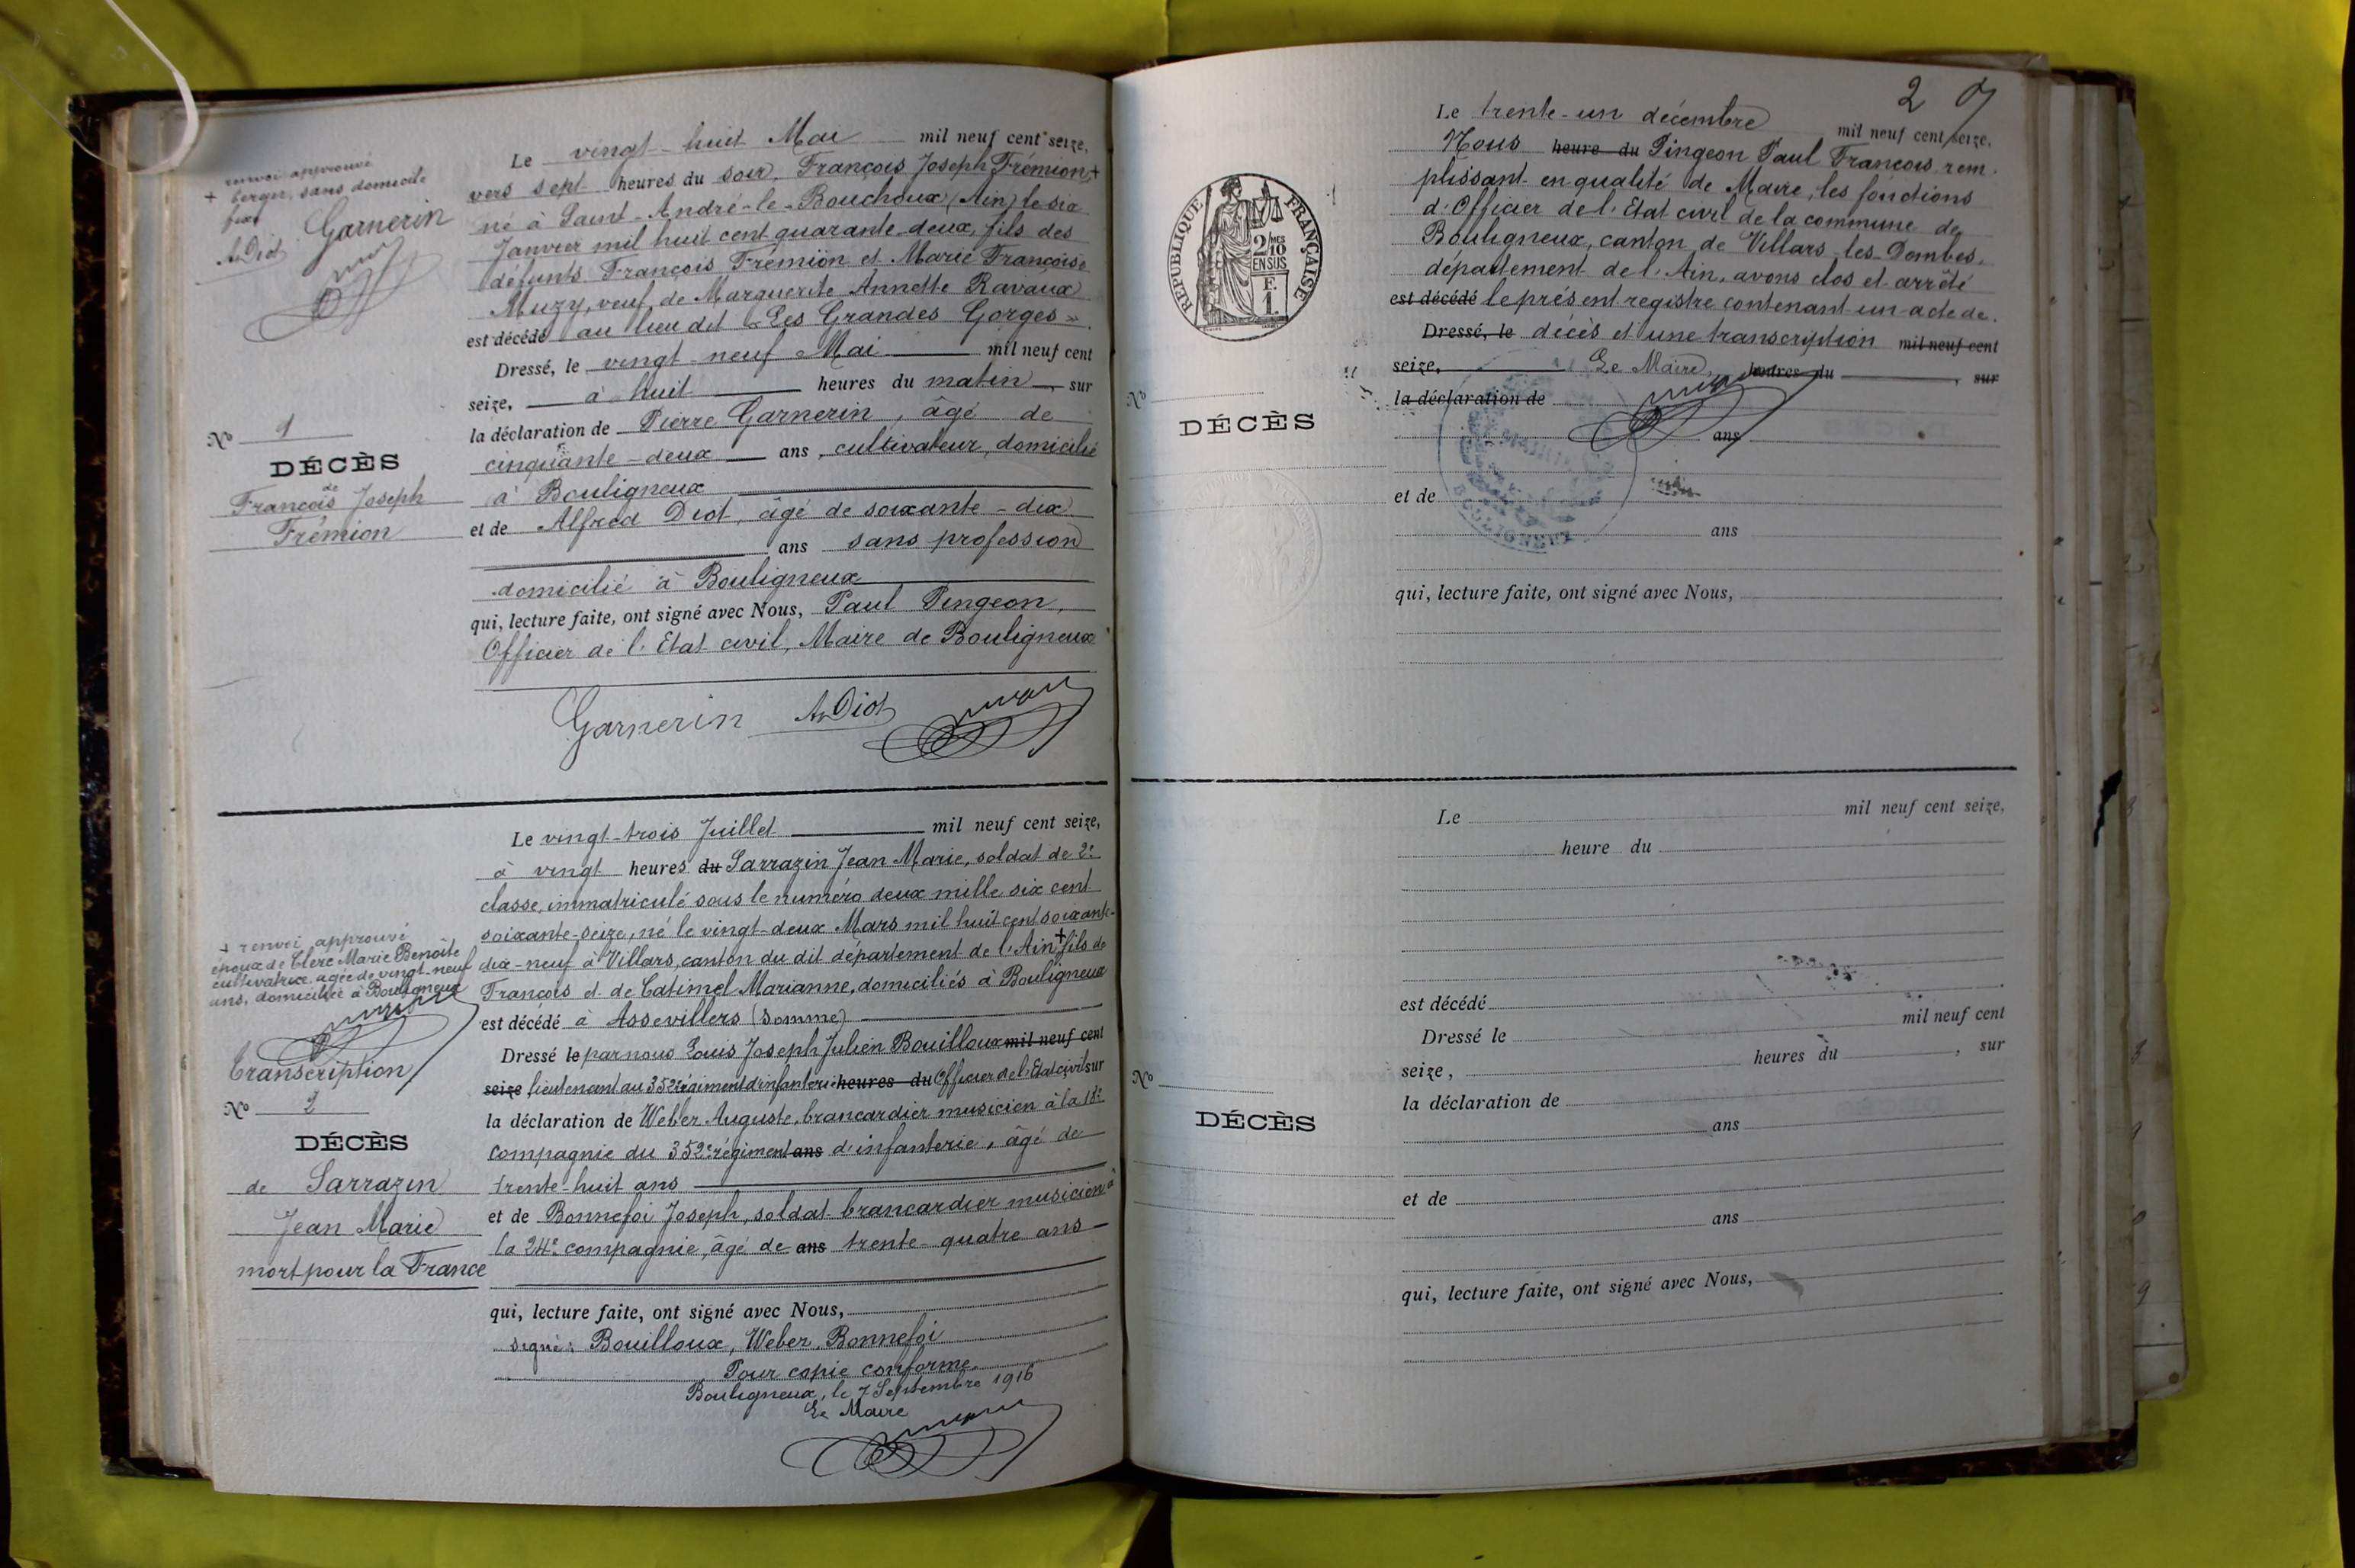 + renvoi approuvé
berger, sans domicile
fixe
A. Diot Garnerin
Le vingt-huit Mai mil neuf cent seize,
vers sept heures du soir, François Joseph Frémion +
né à Saint-André-le-Bouchoux (Ain) le six
Janvier mil huit cent quarante-deux, fils des
défunts François Frémion et Marie Françoise
Muzy, veuf de Marguerite Annette Ravaux
est décédé au lieu dit « Les Grandes Gorges ».
Dressé, le vingt-neuf Mai mil neuf cent
seize, à huit heures du matin, sur
la déclaration de Pierre Garnerin, âgé de
cinquante-deux ans, cultivateur, domicilié
à Bouligneux
et de Alfred Diot, âgé de soixante-dix
ans sans profession
domicilié à Bouligneux
qui, lecture faite, ont signé avec Nous, Paul Pingeon,
Officier de l'Etat civil, Maire de Bouligneux
Garnerin A. Diot
No 1
DÉCÈS
de
François Joseph
Frémion
Le vingt-trois Juillet mil neuf cent seize,
à vingt heures du Sarrazin Jean Marie, soldat de 2e
classe, immatriculé sous le numéro deux mille six cent
soixante-seize, né le vingt-deux Mars mil huit cent soixante-
dix-neuf à Villars, canton du dit département de l'Ain + fils de
François et de Catimel Marianne, domiciliés à Bouligneux
est décédé à Assevillers (Somme)
Dressé le par nous Louis Joseph Julien Bouilloux mil neuf cent
seize lieutenant au 352e régiment d'infanterie heures du Officier de l'Etat civil sur
la déclaration de Weber Auguste, brancardier musicien à la 18e
compagnie du 352e régiment ans d'infanterie, âgé de
trente-huit ans
et de Bonnefoi Joseph, soldat brancardier musicien à
la 24e compagnie, âgé de ans trente-quatre ans
qui, lecture faite, ont signé avec Nous,
signé: Bouilloux, Weber, Bonnefoi
Pour copie conforme
Bouligneux, le 7 Septembre 1916
Le Maire
+ renvoi approuvé
époux de Clerc Marie Benoîte
cultivatrice, âgée de vingt-neuf
ans, domiciliée à Bouligneux
Transcription
No 2
DÉCÈS
de Sarrazin
Jean Marie
mort pour la France
2
RÉPUBLIQUE FRANÇAISE
2/10 MES
EN SUS
F.
1.
Le trente-un décembre mil neuf cent seize.
Nous heure du Pingeon Paul François, rem-
plissant en qualité de Maire, les fonctions
d'Officier de l'Etat civil de la commune de
Bouligneux, canton de Villars-les-Dombes,
département de l'Ain, avons clos et arrêté
est décédé le présent registre contenant un acte de
Dressé, le décès et une transcription mil neuf cent
seize, Le Maire, heures du , sur
la déclaration de
ans
et de
ans
qui, lecture faite, ont signé avec Nous,
MAIRIE
BOULIGNEUX
No
DÉCÈS
Le mil neuf cent seize,
heure du
est décédé
Dressé le mil neuf cent
seize, heures du , sur
la déclaration de
ans
et de
ans
qui, lecture faite, ont signé avec Nous,
No
DÉCÈS